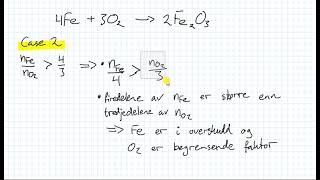 4Fe + 3O₂ ⟶ 2Fe₂O₃
Case 2
n_Fe/n_O₂ > 4/3 ⟹ • n_Fe/4 > n_O₂/3
• firedelene av n_Fe er større enn
tredjedelene av n_O₂
⟹ Fe er i overskudd og
O₂ er begrensende faktor